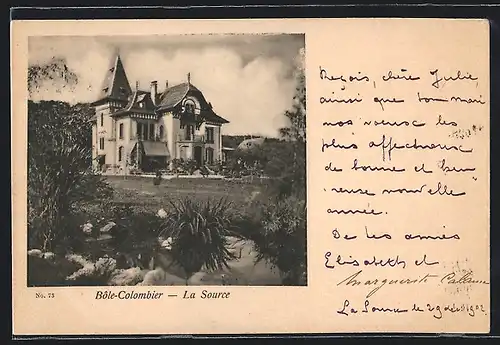 Reçois, chère Julie,
ainsi que ton mari
nos voeux les
plus affectueux
de bonne et heu-
reuse nouvelle
année.
De tes amies
Elisabeth et
Marguerite
La Source le 29 déc. 1902
No. 75 Bôle-Colombier — La Source